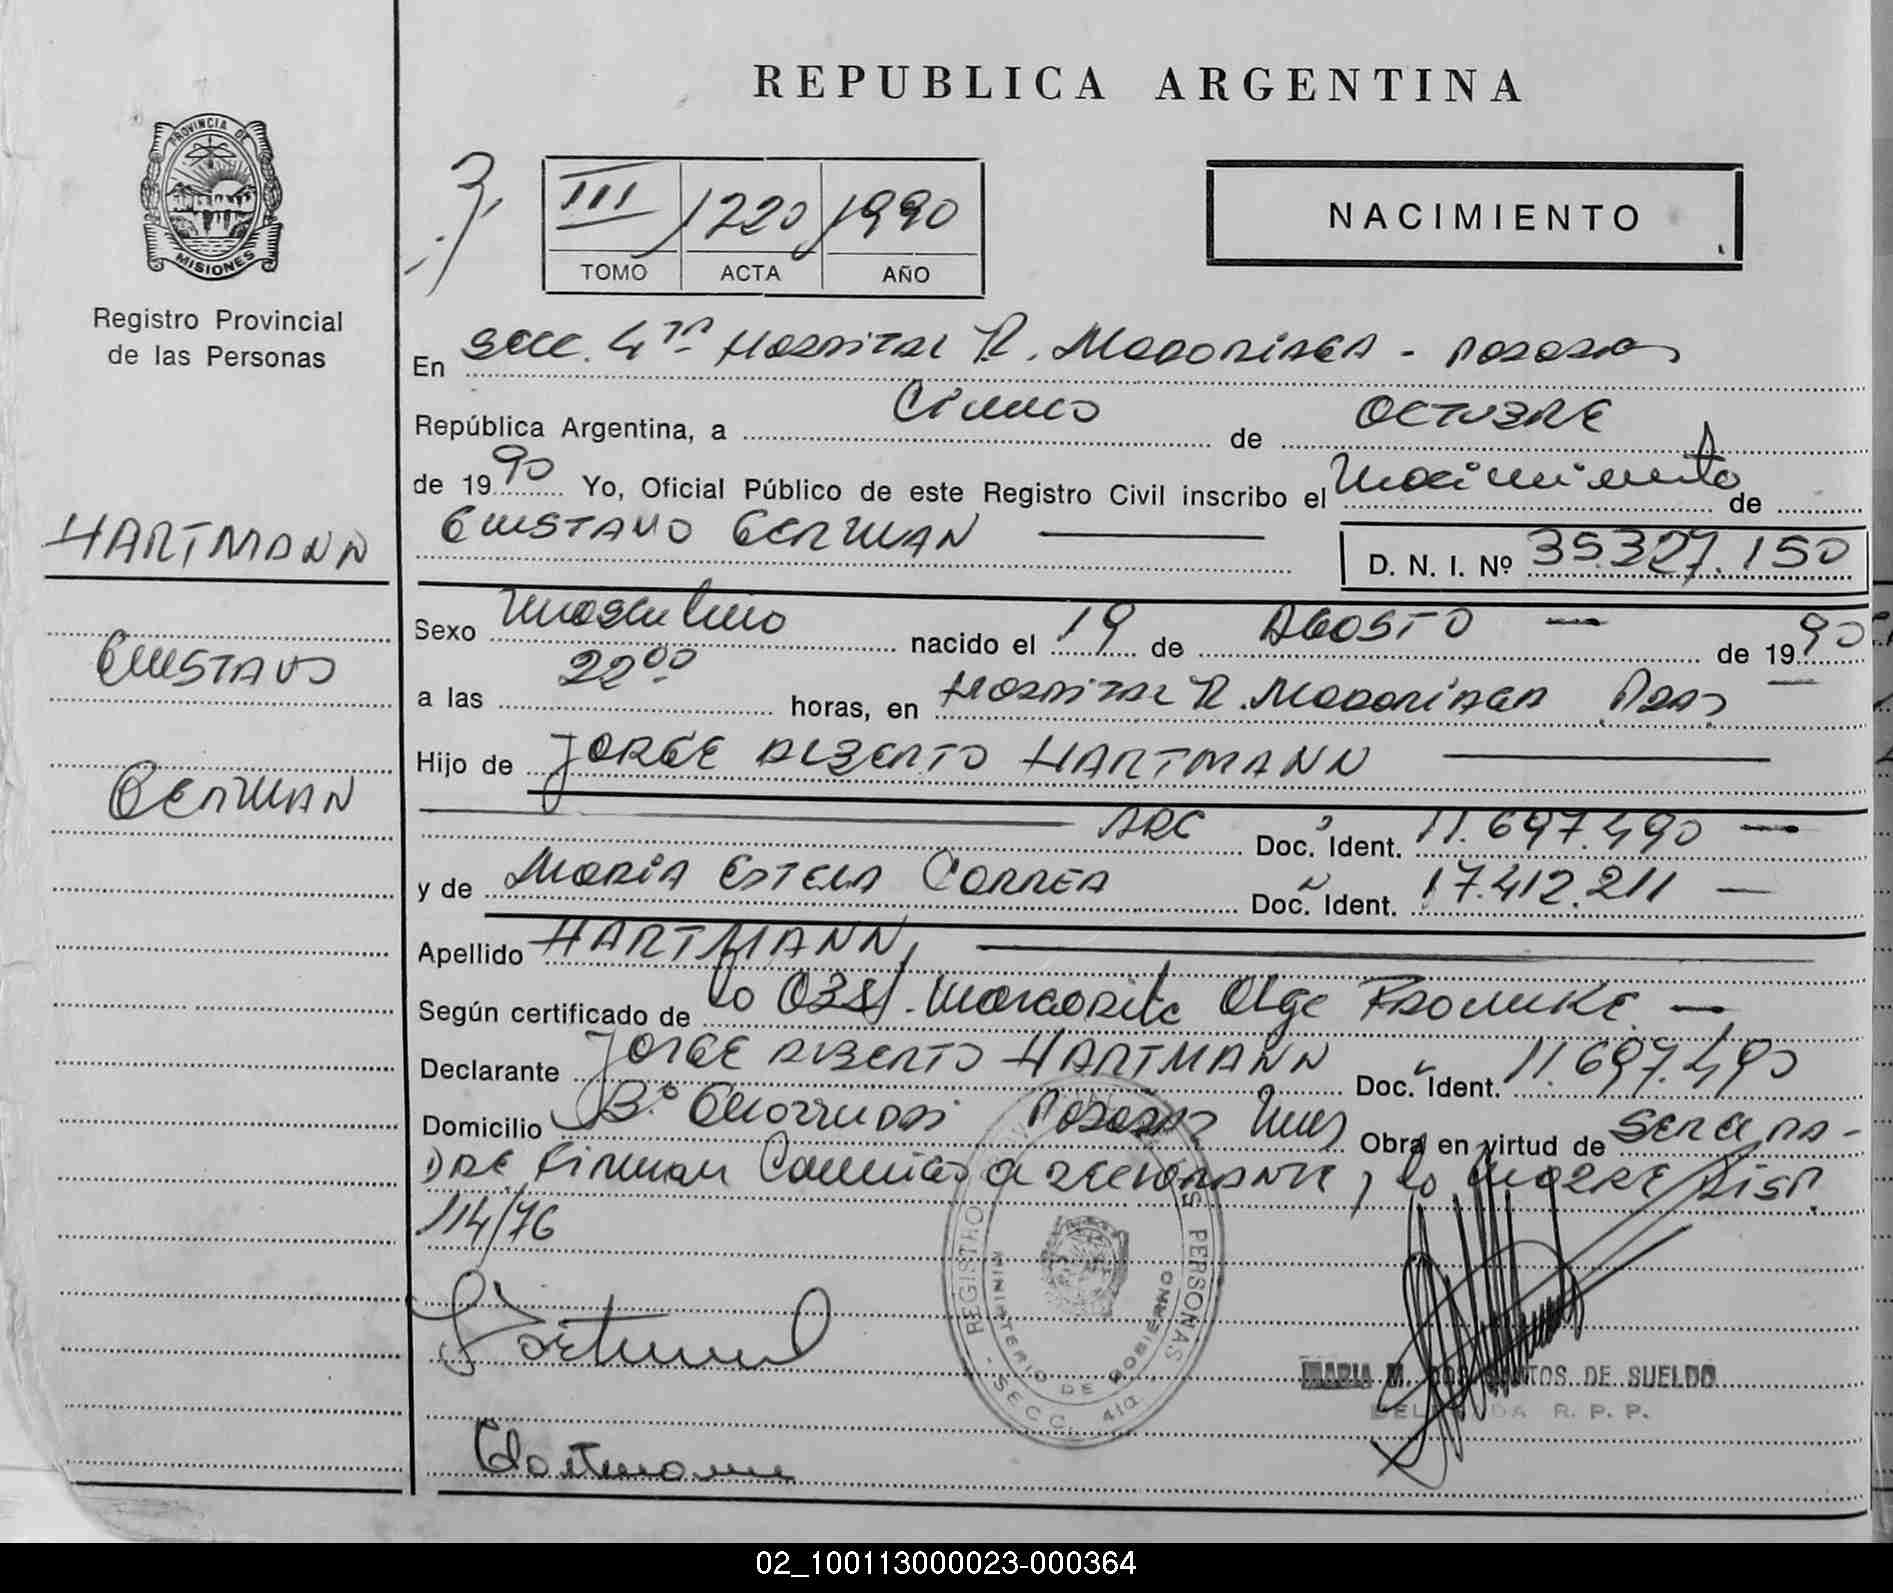 REPUBLICA ARGENTINA
PROVINCIA DE
MISIONES
Registro Provincial
de las Personas
III 1220 1990
TOMO ACTA AÑO
NACIMIENTO
En Secc. 4ta Hospital R. Madariaga - Posadas
República Argentina, a Cinco de OCTUBRE
de 1990 Yo, Oficial Público de este Registro Civil inscribo el Nacimiento de
GUSTAVO GERMAN
D. N. I. Nº 35.327.150
HARTMANN
GUSTAVO
GERMAN
Sexo Masculino nacido el 19 de AGOSTO de 1990
a las 22⁰⁰ horas, en Hospital R. Madariaga Pdas
Hijo de JORGE ALBERTO HARTMANN
ARG Doc. Ident. 11.697.490
y de MARIA ESTELA CORREA Doc. Ident. 17.412.211
Apellido HARTMANN,
Según certificado de la Obst. Margarita Olga
Declarante JORGE ALBERTO HARTMANN Doc. Ident. 11.697.490
Domicilio B.º Posadas Mnes Obra en virtud de SER el PA-
DRE, Firman a, la MADRE Disp.
114/76
REGISTRO PERSONAS
MINISTERIO DE GOBIERNO
SECC. 4ta
MARIA M. DOS SANTOS DE SUELDO
DELEGADA R. P. P.
Hartmann
02_100113000023-000364